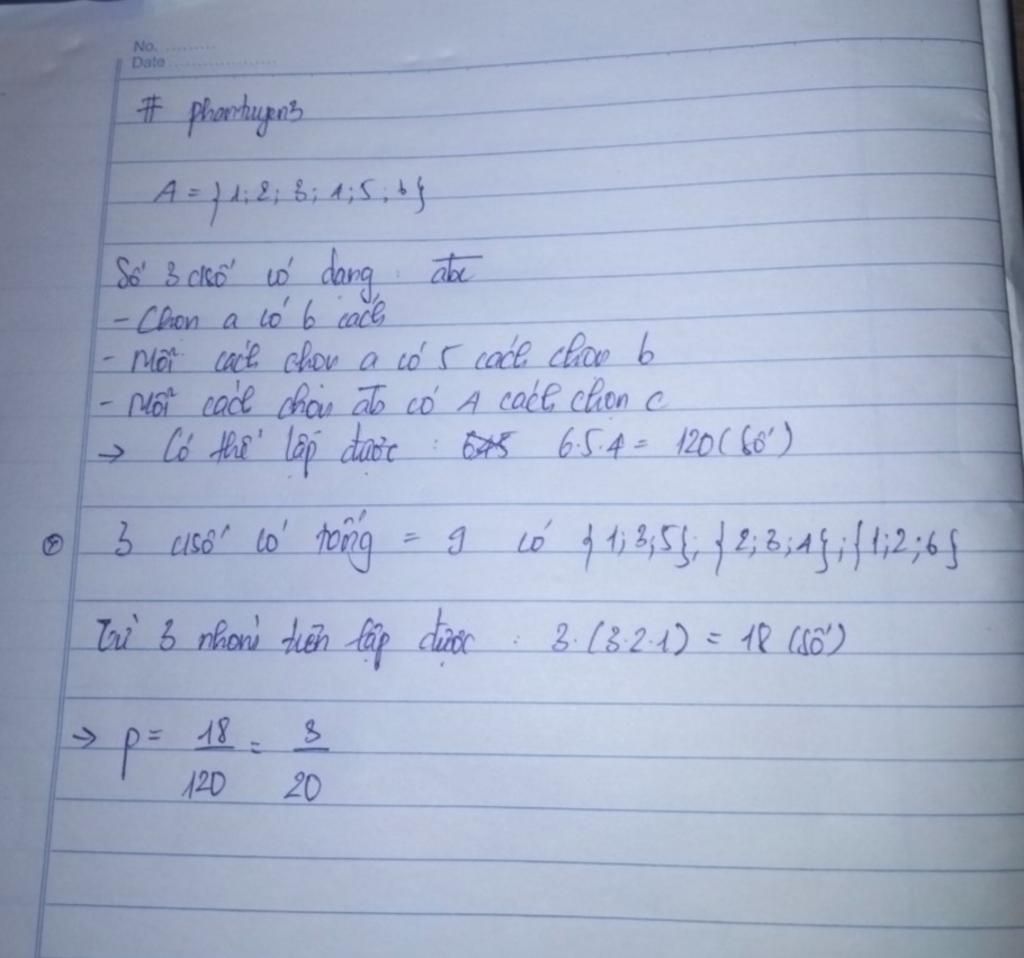 No. ..........
Date ....................
# phamhuyen3
A = {1; 2; 3; 4; 5; 6}
Số 3 csố có dạng : abc
- Chọn a có 6 cách
- Mỗi cách chọn a có 5 cách chọn b
- Mỗi cách chọn ab có 4 cách chọn c
→ Có thể lập được : 6.5.4 = 120 (số)
3 csố có tổng = 9 có {1; 3; 5}; {2; 3; 4}; {1; 2; 6}
Từ 3 nhóm trên lập được : 3.(3.2.1) = 18 (số)
→ P = 18/120 = 3/20